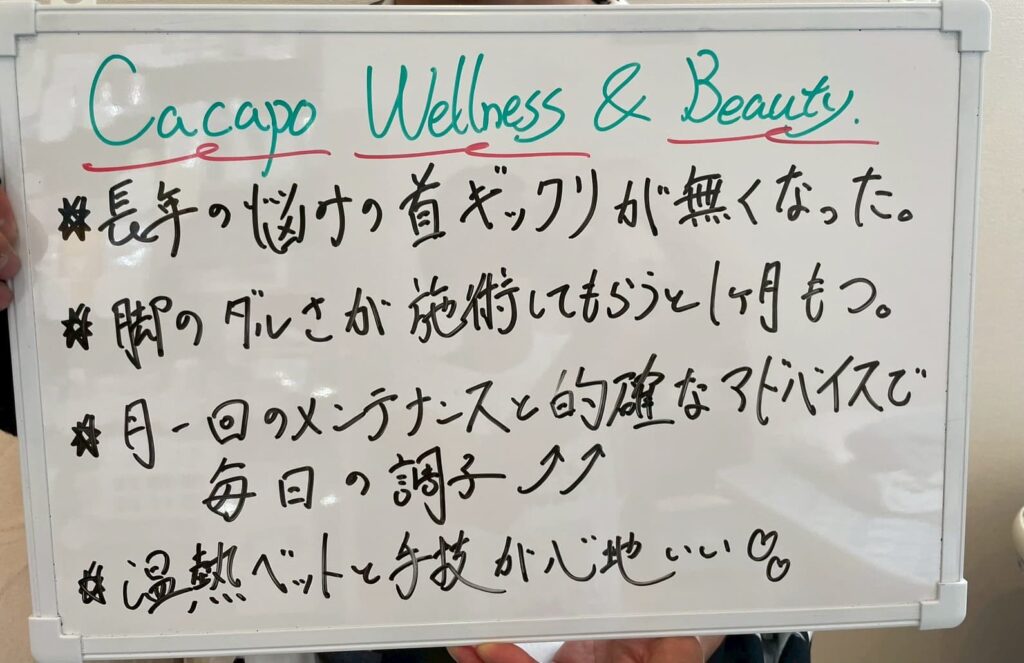 Cacapo Wellness & Beauty.
* 長年の悩みの首ギックリが無くなった。
* 脚のダルさが施術してもらうと1ヶ月もつ。
* 月一回のメンテナンスと的確なアドバイスで
毎日の調子⤴⤴
* 温熱ベットと手技が心地いい♡♡